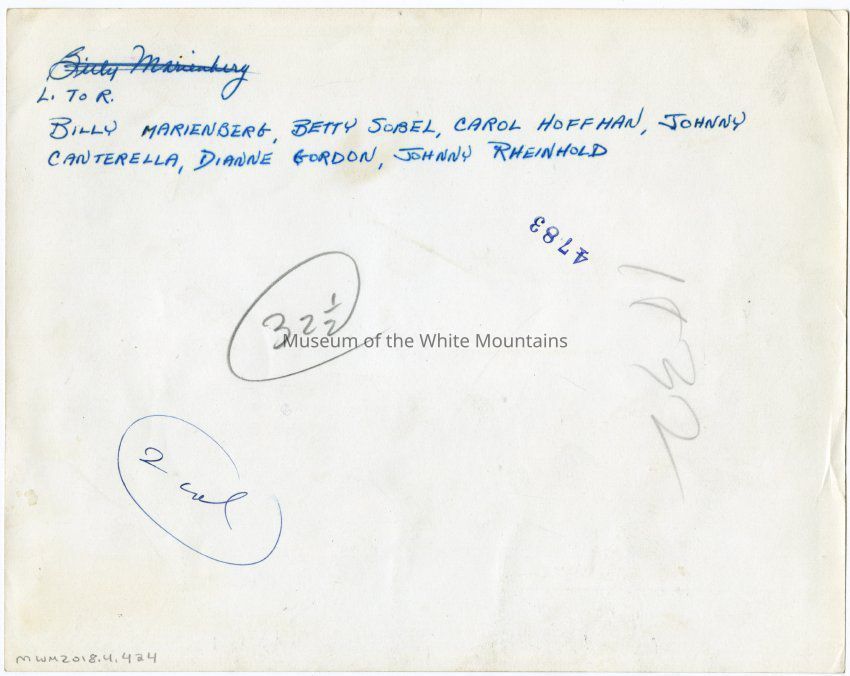 Billy Marienberg
L. TO R.
BILLY MARIENBERG, BETTY SOBEL, CAROL HOFFMAN, JOHNNY
CANTERELLA, DIANNE GORDON, JOHNNY RHEINHOLD
4783
32 1/2
Museum of the White Mountains
2 col
MWM2018.4.424